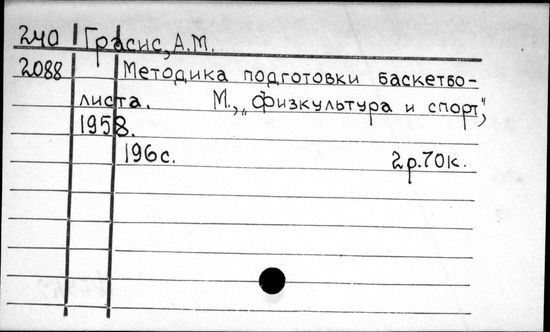 240 Грасис, А.М.
2088 Методика подготовки баскетбо-
листа. М., „Физкультура и спорт",
1958.
196с. 2р.70к.